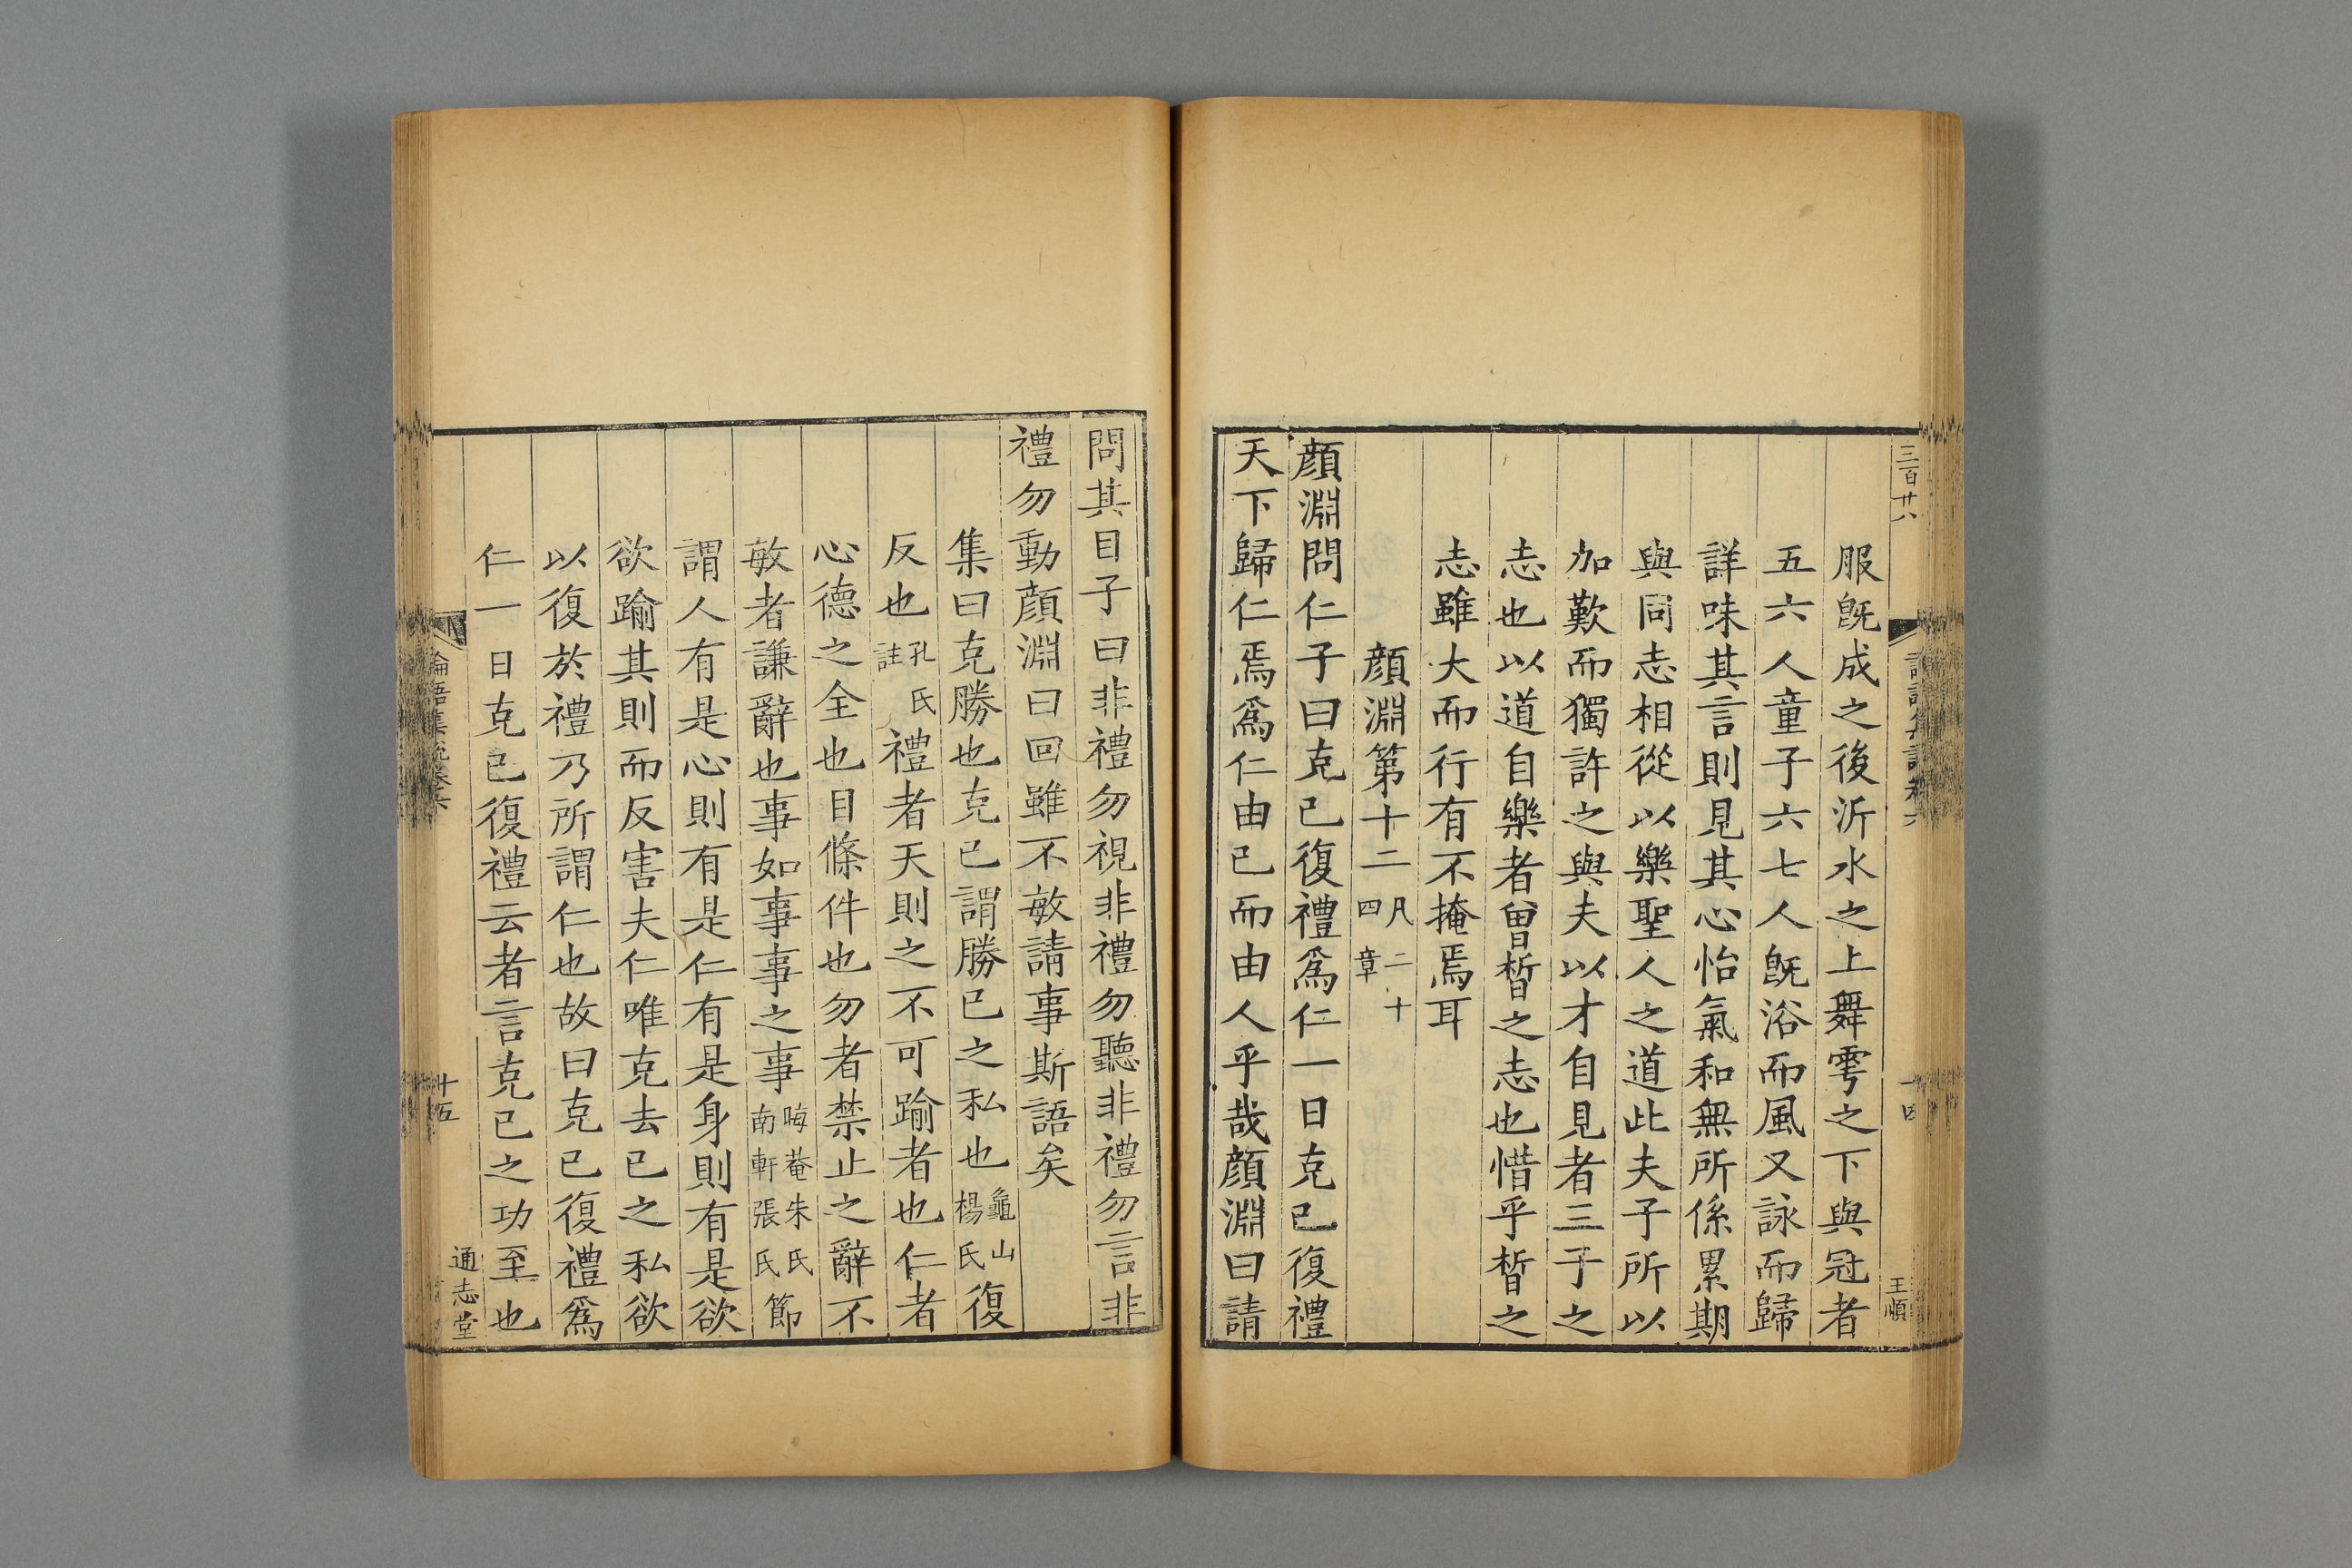 三百廿八
服旣成之後沂水之上舞雩之下與冠者
五六人童子六七人旣浴而風又詠而歸
詳味其言則見其心怡氣和無所係累期
與同志相從以樂聖人之道此夫子所以
加歎而獨許之與夫以才自見者三子之
志也以道自樂者曾晳之志也惜乎晳之
志雖大而行有不掩焉耳
顔淵第十二凡二十四章
顔淵問仁子曰克己復禮爲仁一日克己復禮
天下歸仁焉爲仁由己而由人乎哉顔淵曰請
十四
王順
問其目子曰非禮勿視非禮勿聽非禮勿言非
禮勿動顔淵曰回雖不敏請事斯語矣
集曰克勝也克己謂勝己之私也龜山楊氏復
反也孔氏註禮者天則之不可踰者也仁者
心德之全也目條件也勿者禁止之辭不
敏者謙辭也事如事事之事晦菴朱氏南軒張氏節
謂人有是心則有是仁有是身則有是欲
欲踰其則而反害夫仁唯克去己之私欲
以復於禮乃所謂仁也故曰克己復禮爲
仁一日克己復禮云者言克己之功至也
論語集説卷六
十五
通志堂